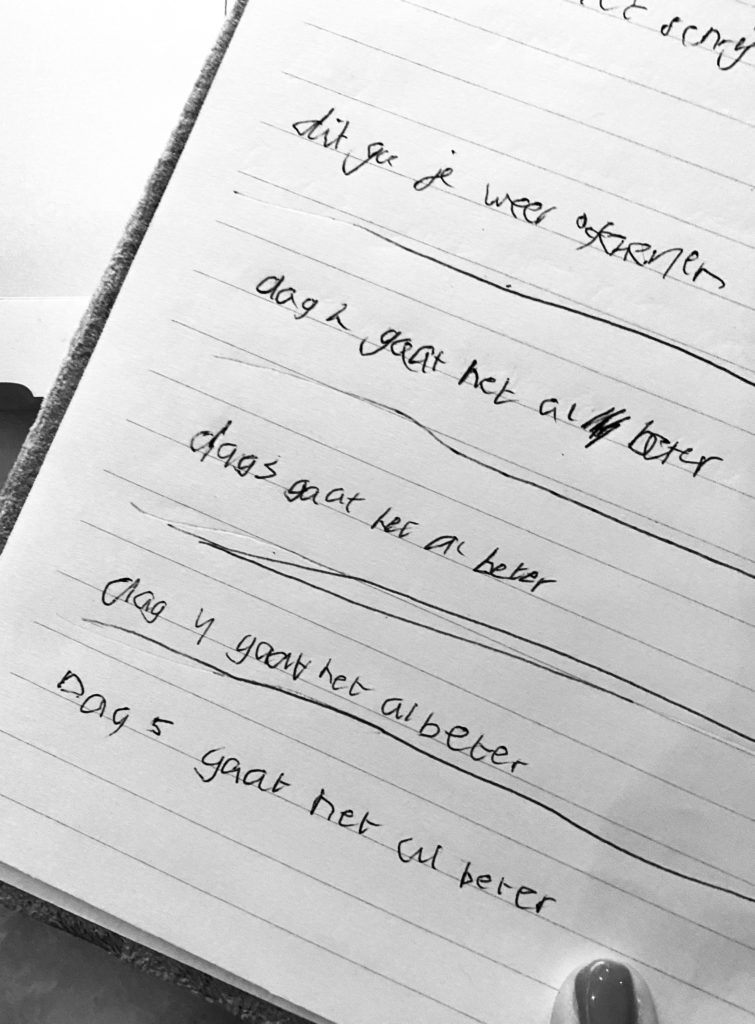 dit ga je weer oefenen
dag 2 gaat het al beter
dag 3 gaat het al beter
dag 4 gaat het al beter
Dag 5 gaat het al beter